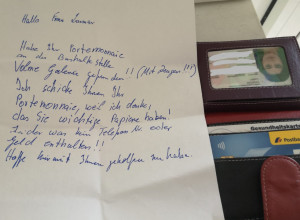 Hallo Frau
Habe Ihr Portemonnaie
an der Bushalte Stelle
gefunden!! (Mit Zeugen!!)
Ich schicke Ihnen Ihr
Portemonnaie, weil ich denke,
das Sie wichtige Papiere haben!
Leider war kein Telefon Nr. oder
Geld enthalten!!
Hoffe hiermit Ihnen geholfen zu haben.
Gesundheitskarte